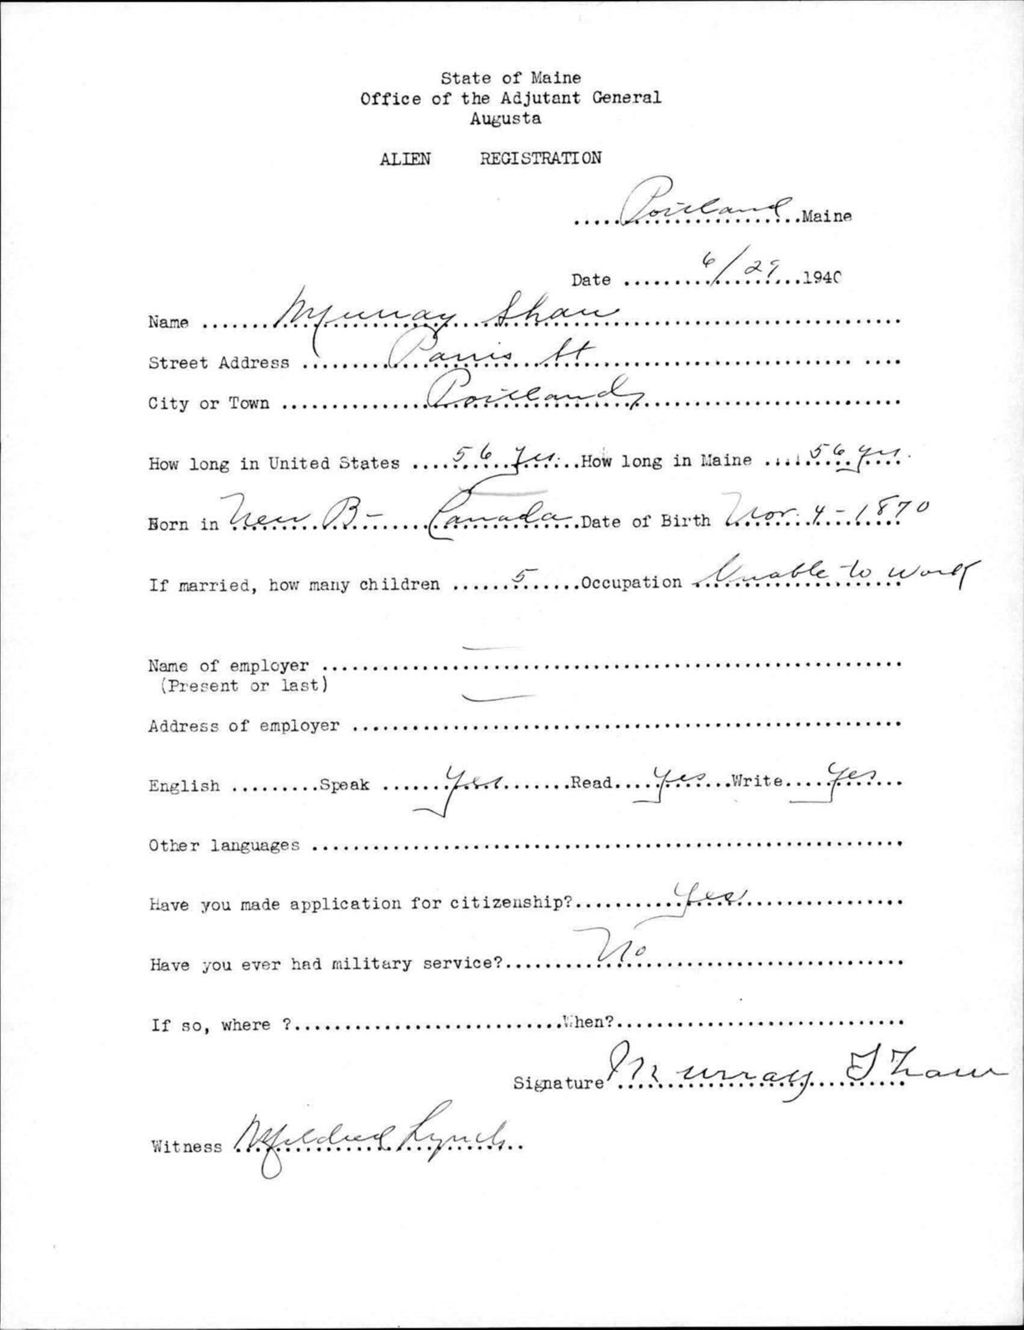 State of Maine
Office of the Adjutant General
Augusta
ALIEN REGISTRATION
.....Portland.....Maine
Date ........6/29........1940
Name .......Murray Shaw.......
Street Address .......Parris St.......
City or Town .......Portland.......
How long in United States ....56 yrs....How long in Maine ....56 yrs....
Born in New B- Canada Date of Birth Nov. 4 - 1870
If married, how many children ......5......Occupation Unable to work
Name of employer .......—.......
(Present or last)
Address of employer .......—.......
English .........Speak .......Yes.......Read.....Yes.....Write.....Yes.....
Other languages ..............
Have you made application for citizenship?...........Yes...........
Have you ever had military service?.........No.........
If so, where ?..............When?..............
Signature Murray Shaw
Witness Mildred Lynch